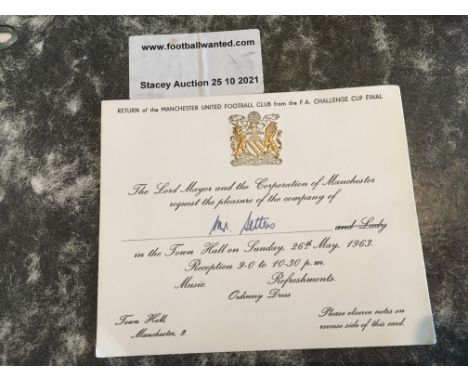 www.footballwanted.com
Stacey Auction 25 10 2021
RETURN of the MANCHESTER UNITED FOOTBALL CLUB from the F.A. CHALLENGE CUP FINAL
The Lord Mayor and the Corporation of Manchester
request the pleasure of the company of
Mr. Setters and Lady
in the Town Hall on Sunday, 26th May, 1963.
Reception 9-0 to 10-30 p.m.
Music. Refreshments.
Ordinary Dress
Town Hall,
Manchester, 2.
Please observe notes on
reverse side of this card.